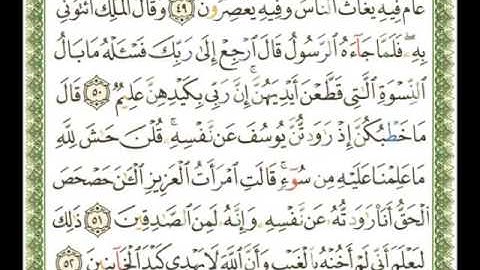 عَامٌ فِيهِ يُغَاثُ ٱلنَّاسُ وَفِيهِ يَعْصِرُونَ ٤٩ وَقَالَ ٱلْمَلِكُ ٱئْتُونِى
بِهِۦ ۖ فَلَمَّا جَآءَهُ ٱلرَّسُولُ قَالَ ٱرْجِعْ إِلَىٰ رَبِّكَ فَسْـَٔلْهُ مَا بَالُ
ٱلنِّسْوَةِ ٱلَّٰتِى قَطَّعْنَ أَيْدِيَهُنَّ ۚ إِنَّ رَبِّى بِكَيْدِهِنَّ عَلِيمٌ ٥٠ قَالَ
مَا خَطْبُكُنَّ إِذْ رَٰوَدتُّنَّ يُوسُفَ عَن نَّفْسِهِۦ ۚ قُلْنَ حَٰشَ لِلَّهِ
مَا عَلِمْنَا عَلَيْهِ مِن سُوٓءٍ ۚ قَالَتِ ٱمْرَأَتُ ٱلْعَزِيزِ ٱلْـَٰٔنَ حَصْحَصَ
ٱلْحَقُّ أَنَا۠ رَٰوَدتُّهُۥ عَن نَّفْسِهِۦ وَإِنَّهُۥ لَمِنَ ٱلصَّٰدِقِينَ ٥١ ذَٰلِكَ
لِيَعْلَمَ أَنِّى لَمْ أَخُنْهُ بِٱلْغَيْبِ وَأَنَّ ٱللَّهَ لَا يَهْدِى كَيْدَ ٱلْخَآئِنِينَ ٥٢